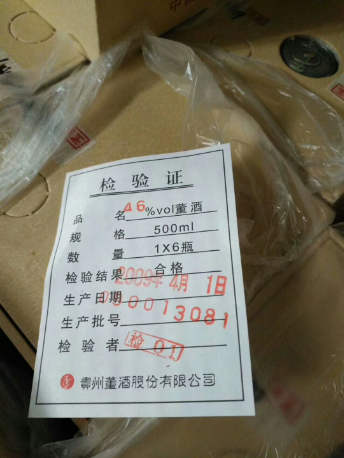 检验证
品名 46%vol董酒
规格 500ml
数量 1X6瓶
检验结果 合格
生产日期 2009年4月1日
生产批号 00013081
检验者 检01
贵州董酒股份有限公司